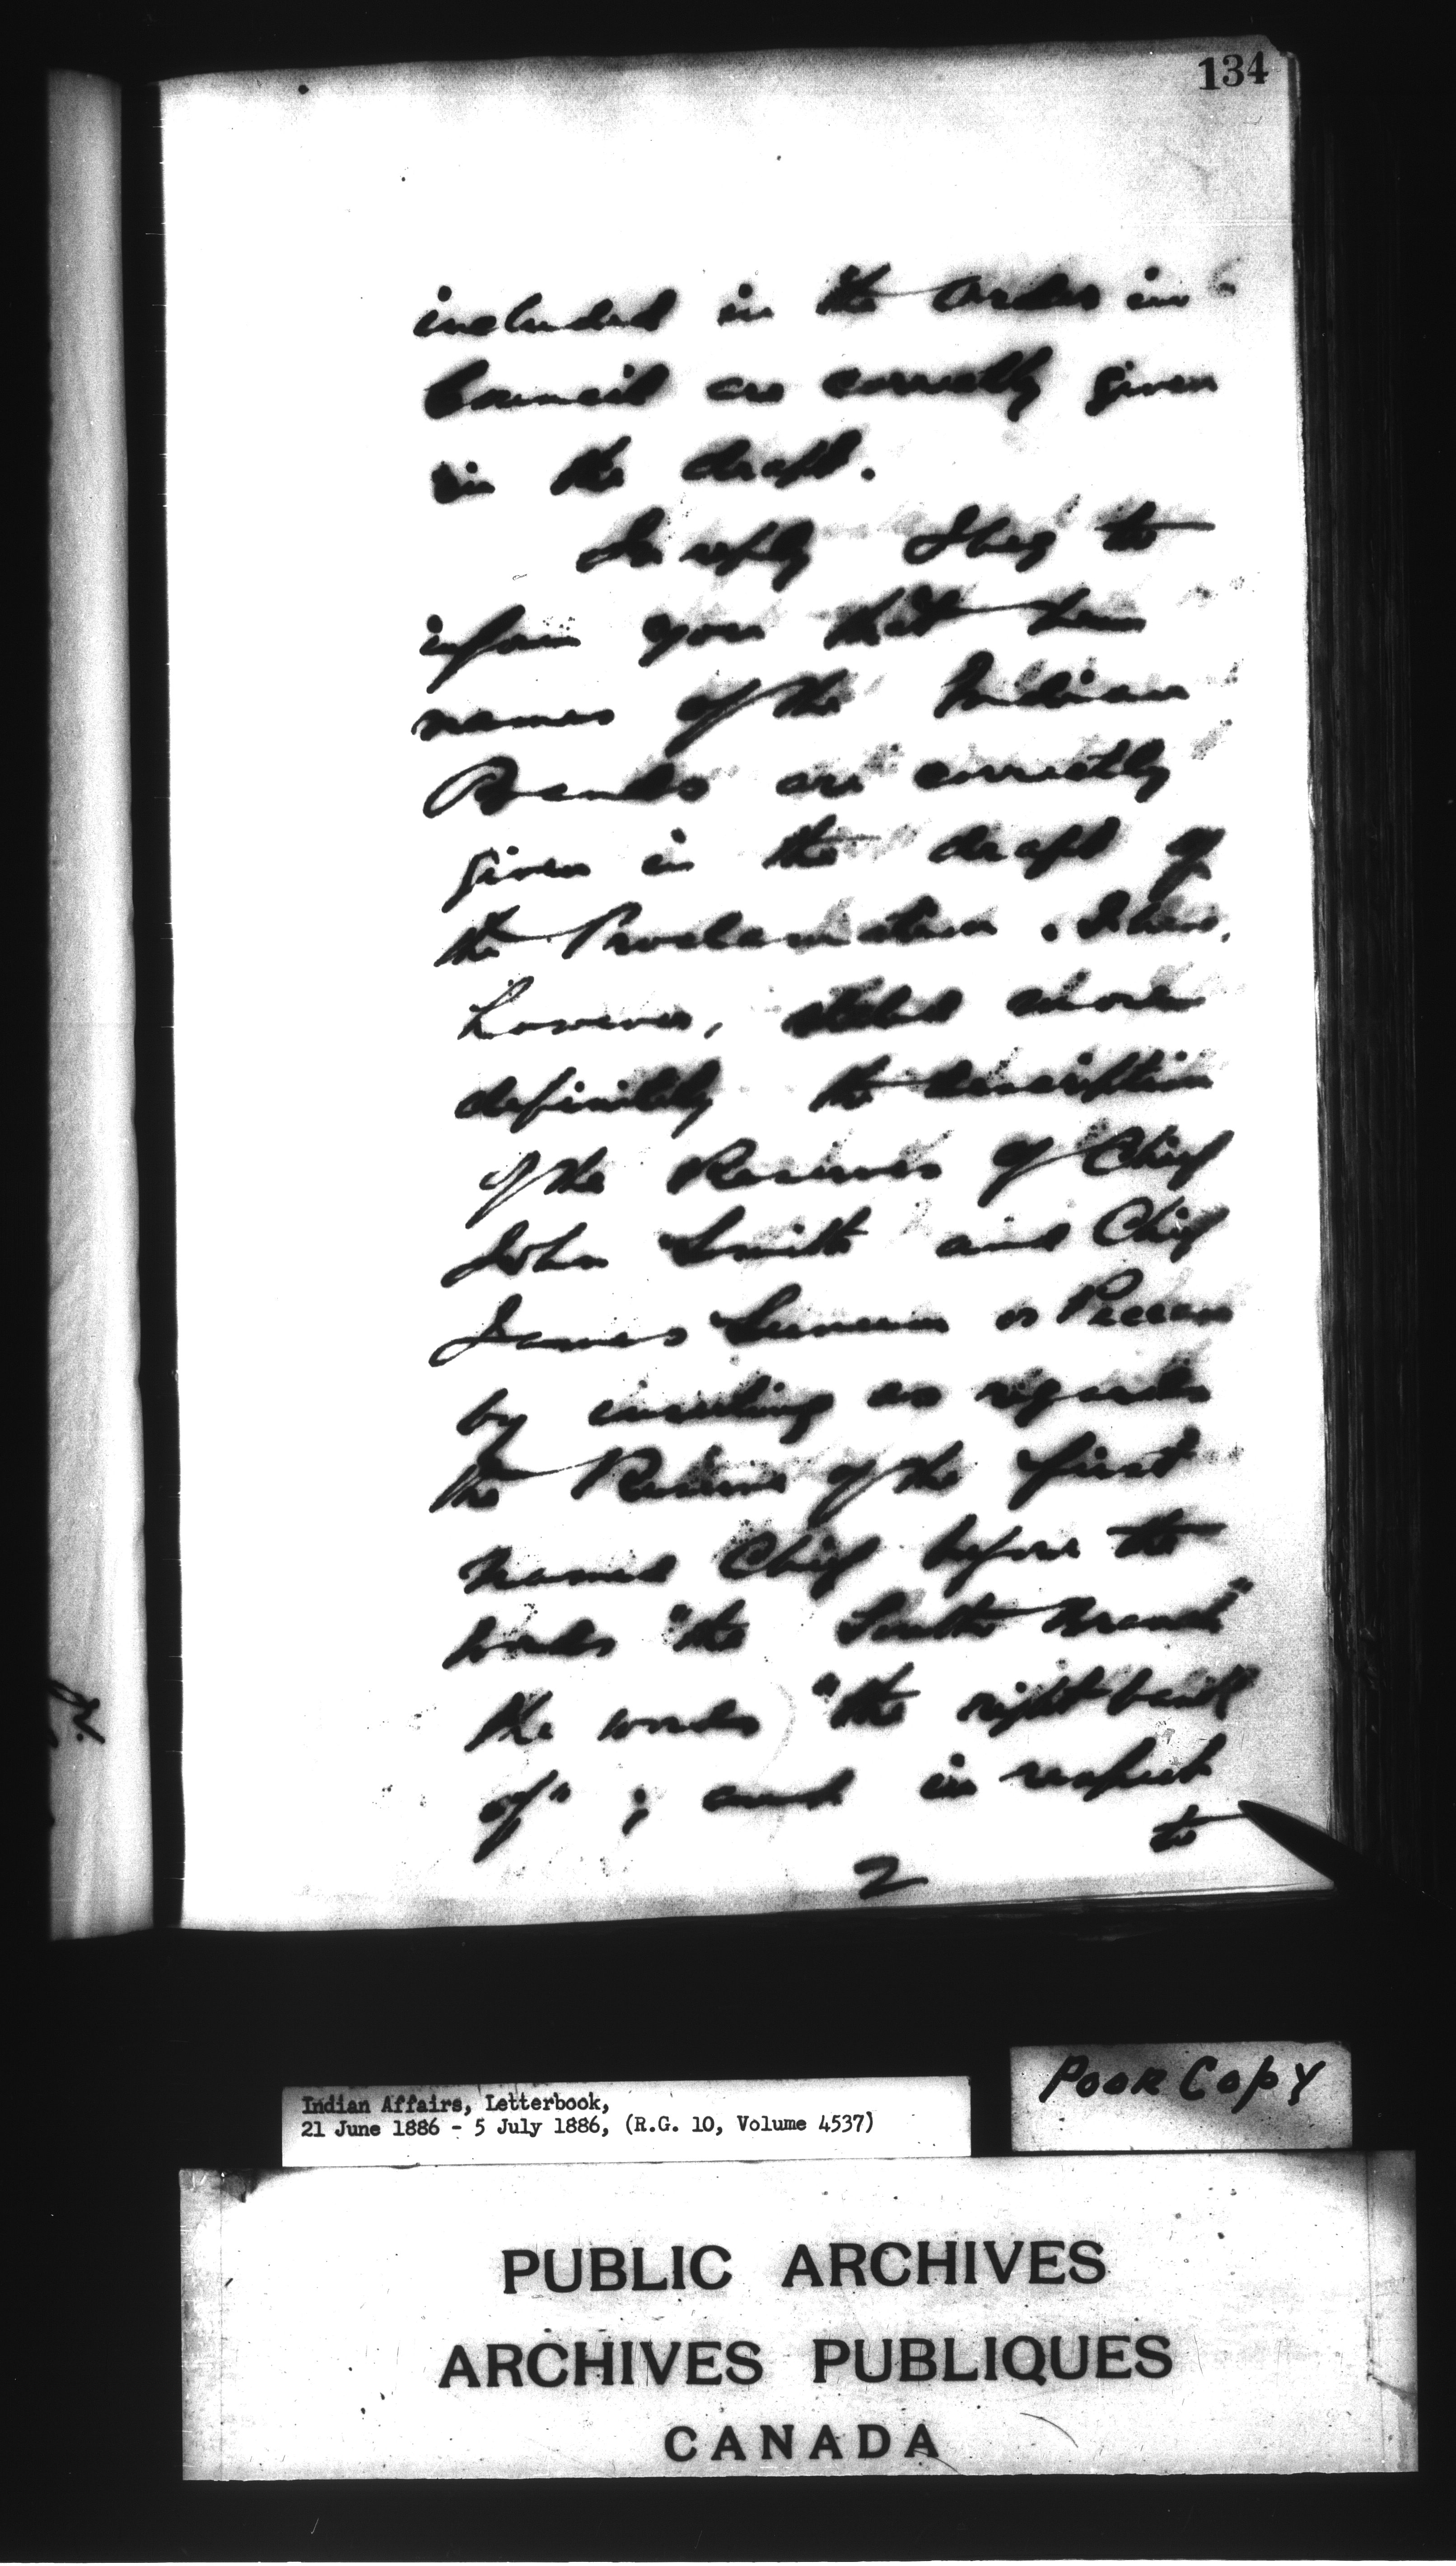 134
included in the Order in
Council are correctly given
in the draft.
In reply I beg to
inform you that the
names of the Indian
Bands are correctly
given in the draft of
the Proclamation. I have,
however, stated more
definitely the description
of the Reserves of Chief
John Smith and Chief
James or
by inserting as regards
the Reserve of the first
named Chief before the
words "the South Branch"
the words "the right bank
of"; and in respect
to
2
Poor Copy
Indian Affairs, Letterbook,
21 June 1886 - 5 July 1886, (R.G. 10, Volume 4537)
PUBLIC ARCHIVES
ARCHIVES PUBLIQUES
CANADA